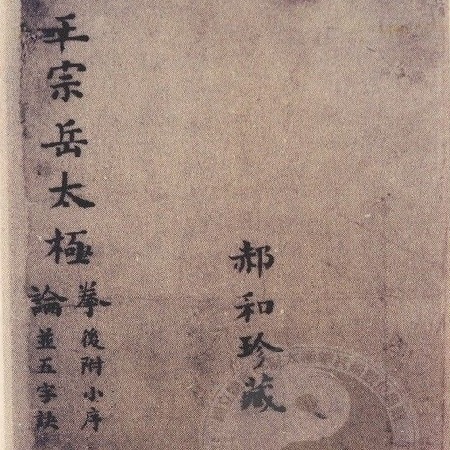 郝和珍藏
王宗岳太極
拳後附小序
論並五字訣